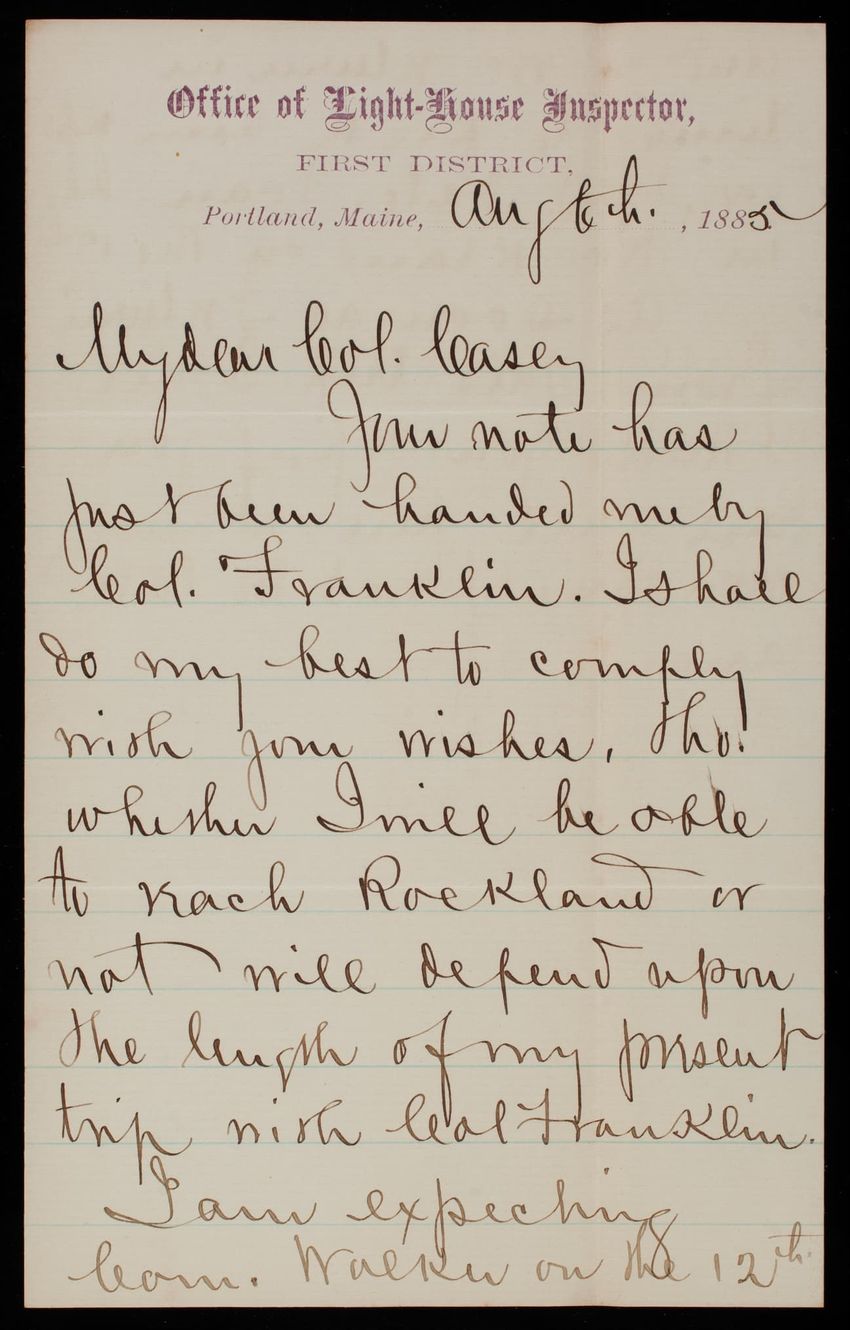 Office of Light-House Inspector,
FIRST DISTRICT,
Portland, Maine, Aug 6th. , 1885
My dear Col. Casey
Your note has
just been handed me by
Col. Franklin. I shall
do my best to comply
with your wishes, tho.
whether I will be able
to reach Rockland or
not will depend upon
the length of my present
trip with Col Franklin.
I am expecting
Com. Walker on the 12th.